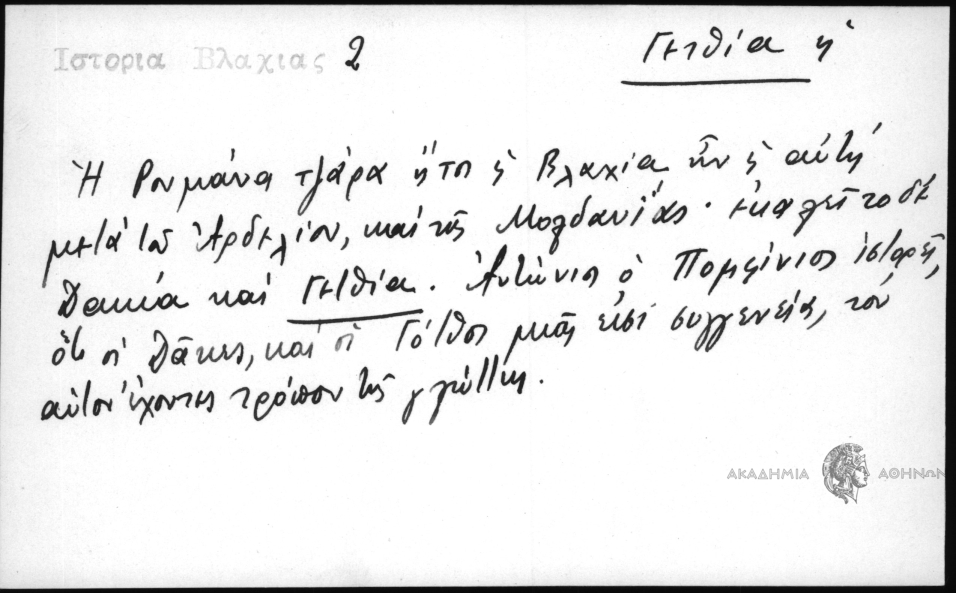 Ιστορια Βλαχιας 2
Γετθία ἡ
Ἡ Ρουμάνα τζάρα ἤτοι ἡ Βλαχία ἦν ἡ αὐτὴ
μετὰ τοῦ Ἀρδελίου, καὶ τῆς Μολδανίας· ἐκαλεῖτο δὲ
Δακία καὶ Γετθία. Ἀντώνιος ὁ Πομφίνιος ἱστορεῖ,
ὅτι οἱ Δᾶκες, καὶ οἱ Γότθοι μιᾶς εἰσὶ συγγενείας, τὸν
αὐτὸν ἔχοντες τρόπον τῆς γλώττης.
ΑΚΑΔΗΜΙΑ ΑΘΗΝΩΝ